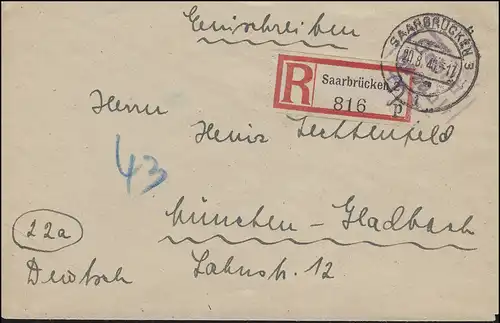 Einschreiben
SAARBRÜCKEN 3
R Saarbrücken
816 p
Herrn
Heinz Lechtenfeld
43
München-Gladbach
22a
Lahnstr. 12
Deutsch